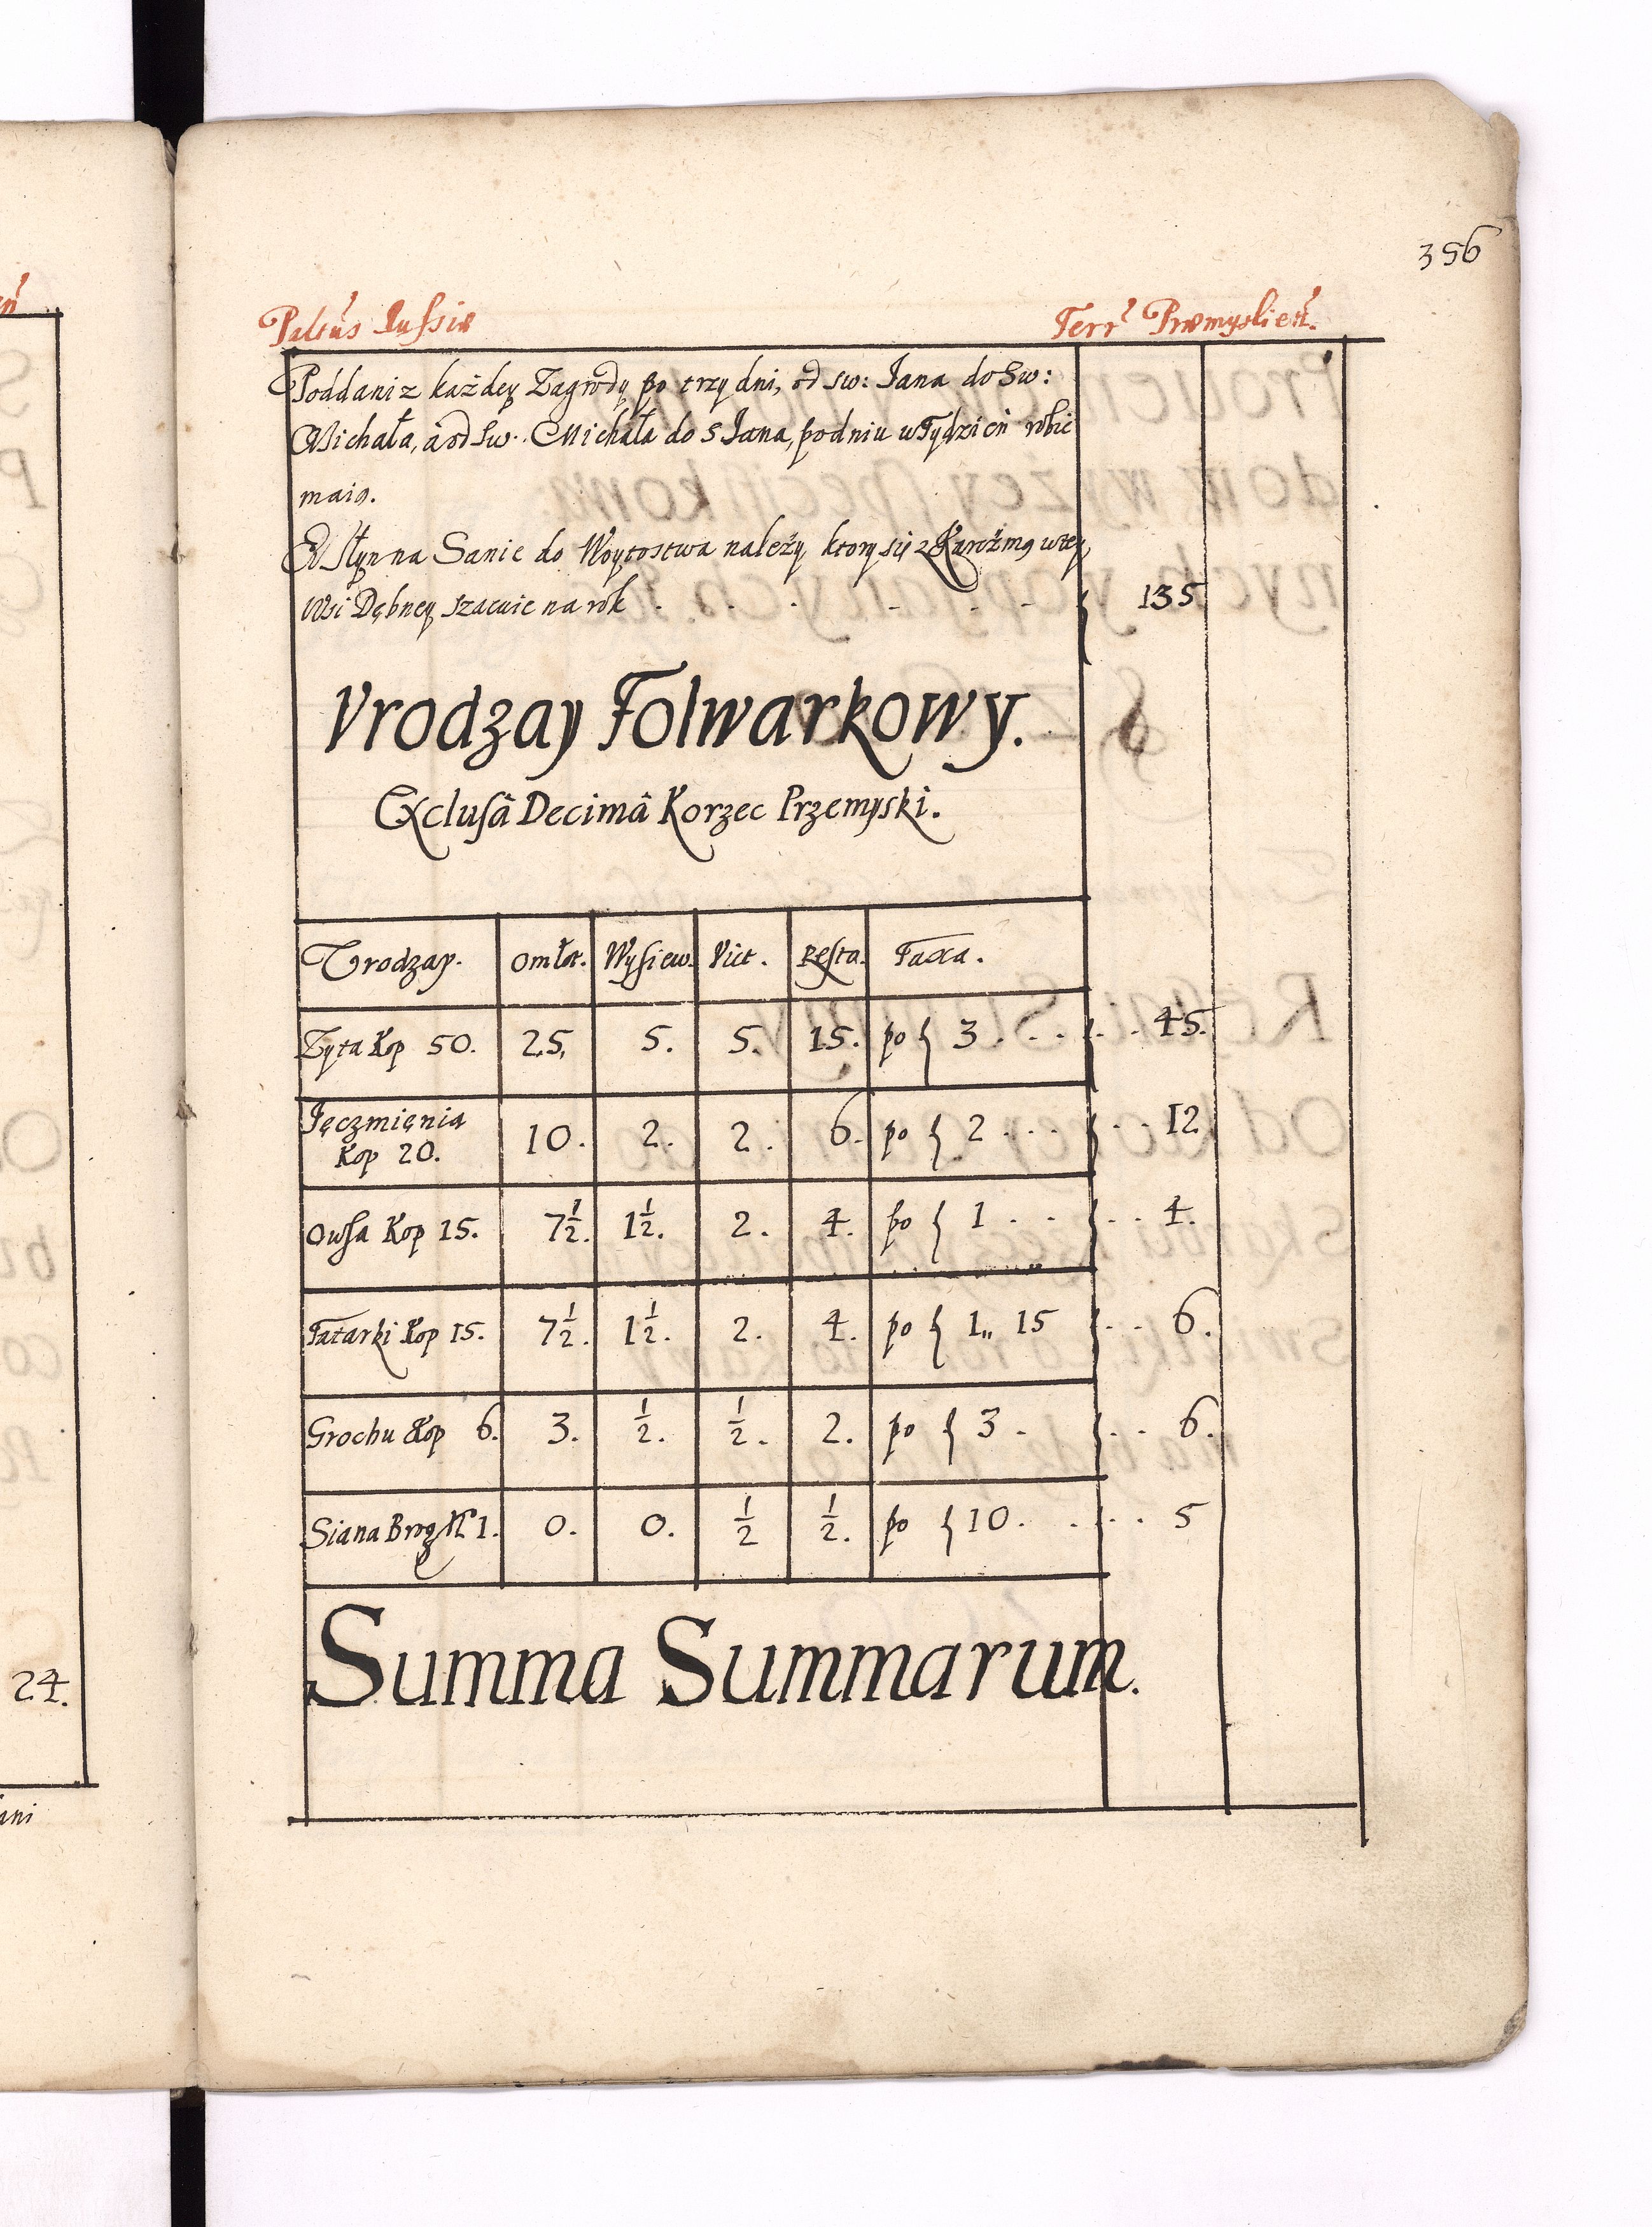 356
Palt̃us Russiæ Terrˀ Præmyslieñ.
Poddani z każdey Zagrody po trzy dni, od sw: Jana do Sw:
Michała, á od Sw. Michała do S Jana, po dniu w Tydzień robić
maią.
Młyn na Sanie do Woytostwa należy, ktory się z Karczmą w tey
Wsi Dębney szacuie na rok . . . . . . 135
Vrodzay Folwarkowy.
Exclusâ Decimâ Korzec Przemyski.
Vrodzay. Omłot. Wysiew. Vict. Resta. Taxa.
Zyta Kop 50. 25. 5. 5. 15. po { 3 . . . { . . 45.
Jęczmienia
Kop 20. 10. 2. 2. 6. po { 2 . . . { . . 12
Owsa Kop 15. 7½. 1½. 2. 4. po { 1 . . { . . 4.
Tatarki Kop 15. 7½. 1½. 2. 4. po { 1,, 15 { . . 6.
Grochu Kop 6. 3. ½. ½. 2. po { 3 . { . . 6.
Siana Brog N 1. 0. 0. ½ ½. po { 10 . . { . . 5
Summa Summarum.
24.
ani